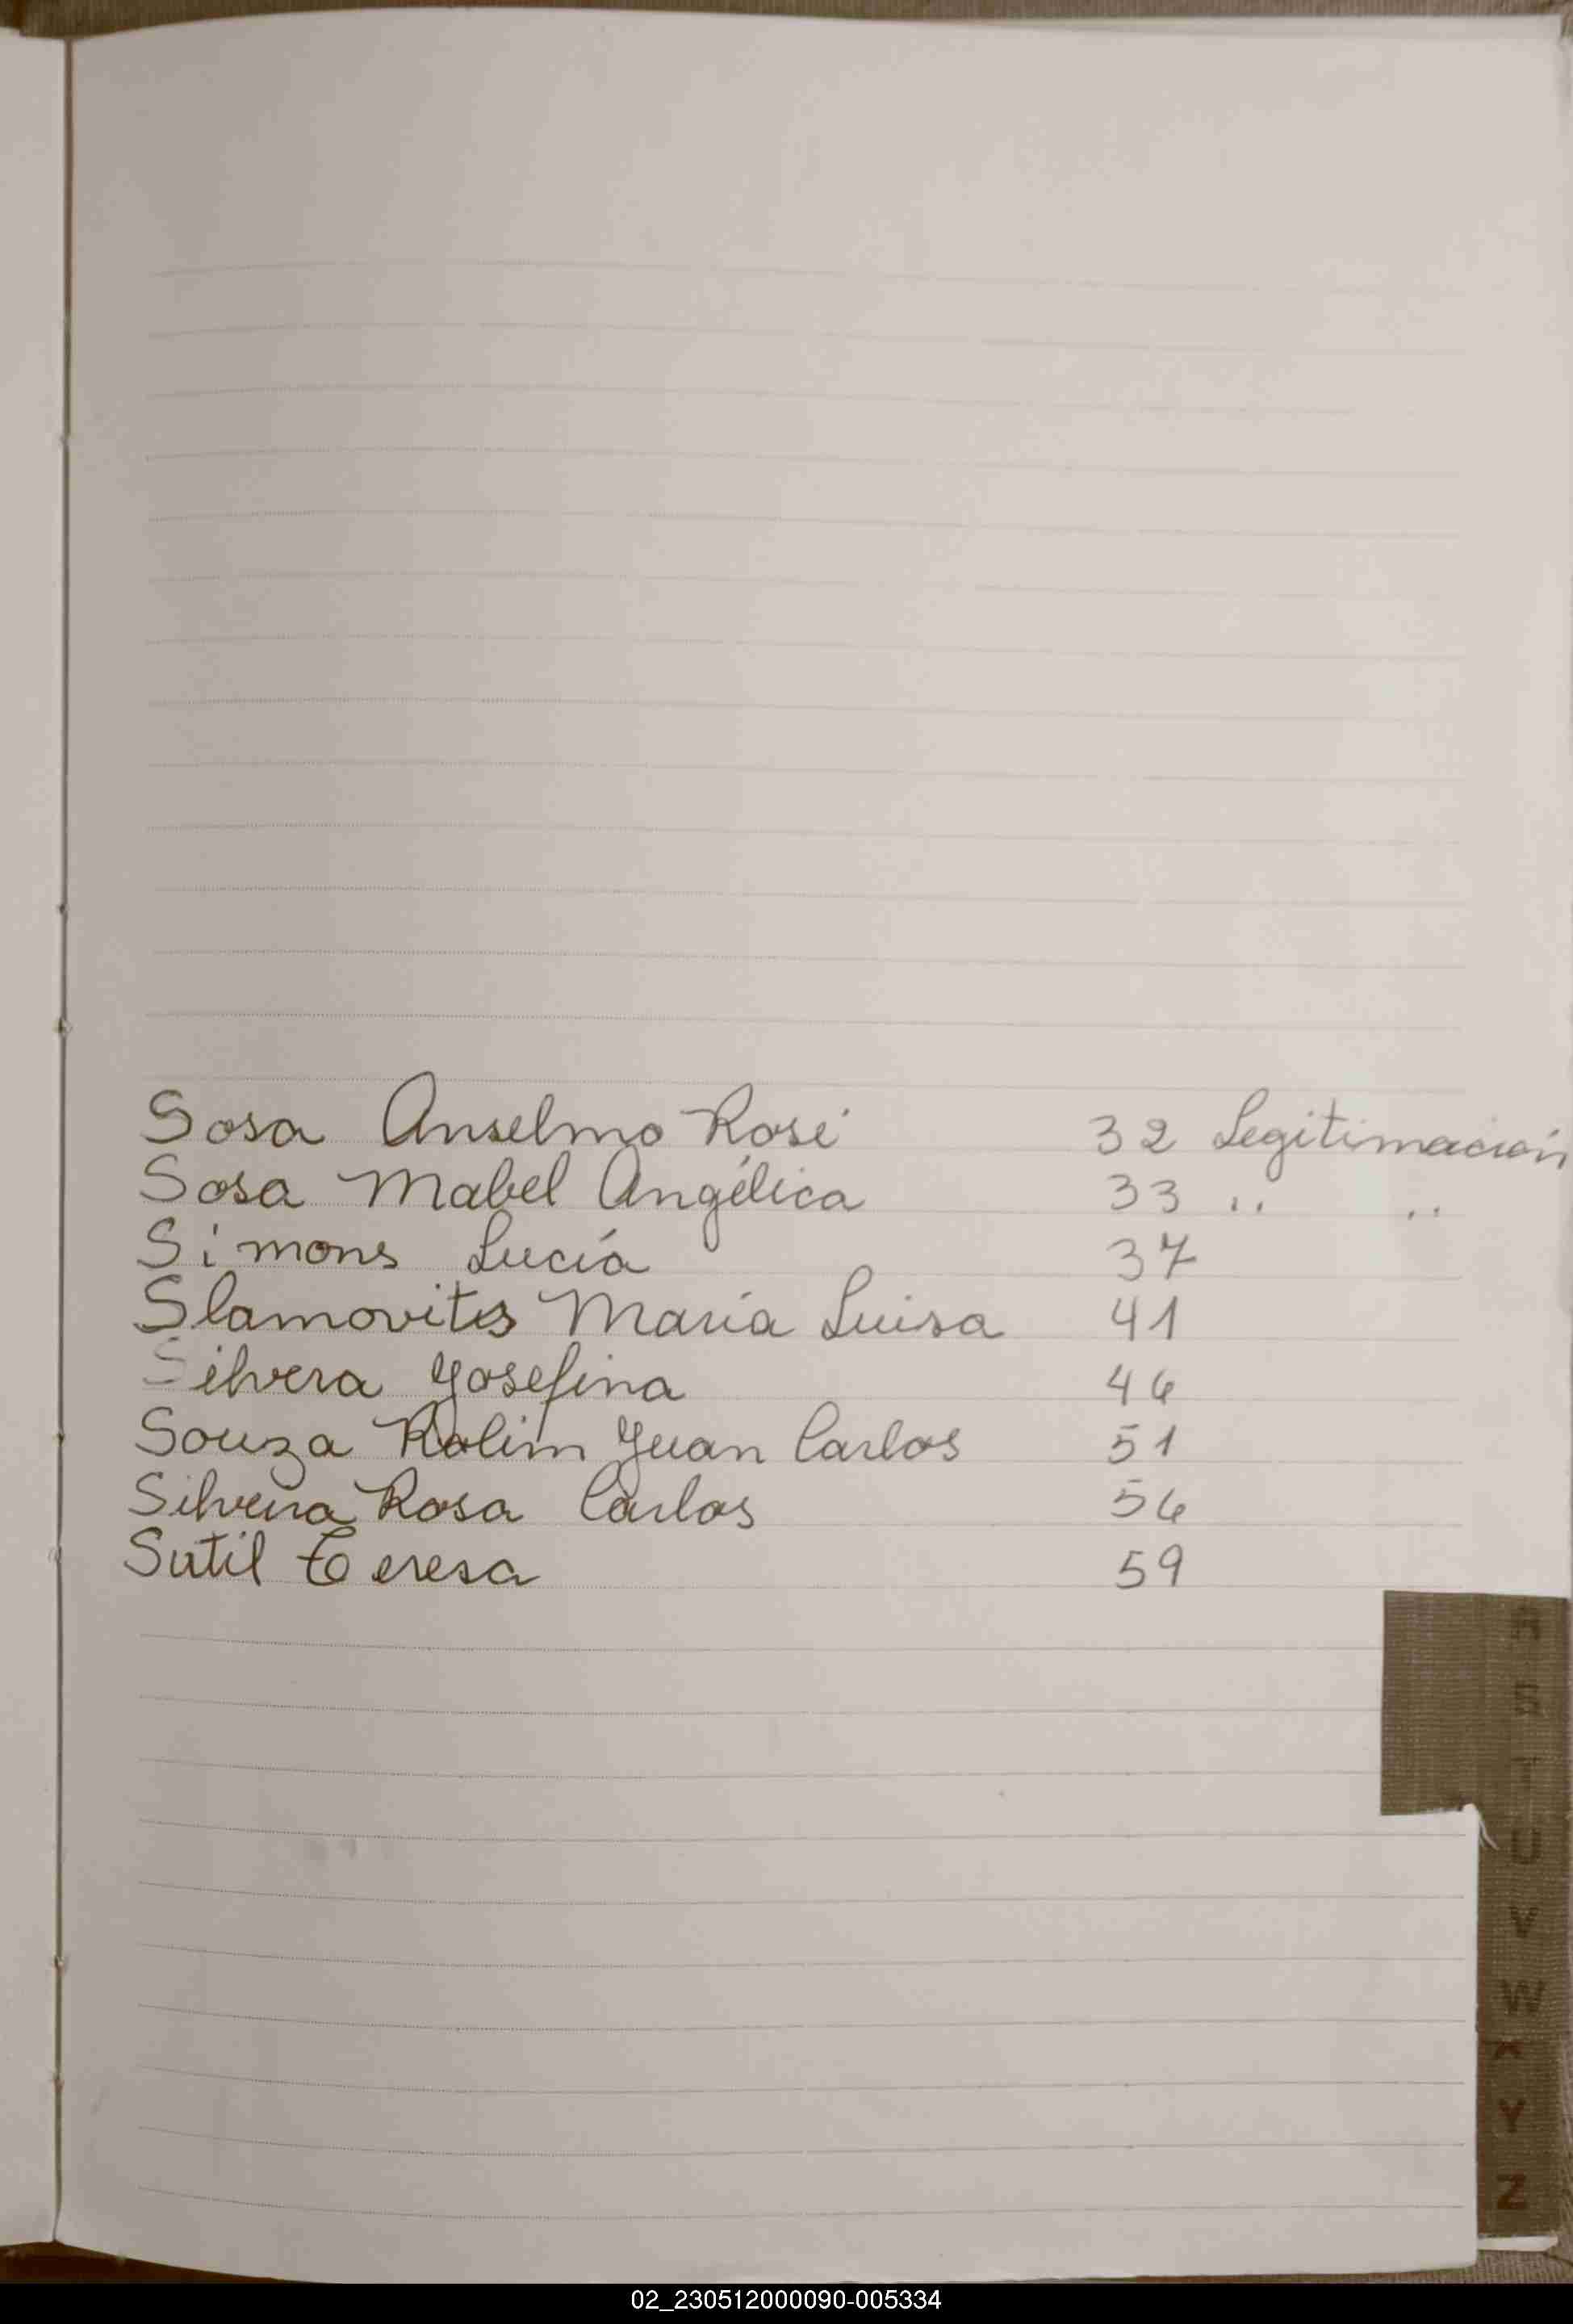 Sosa Anselmo Rosé 32 Legitimación
Sosa Mabel Angélica 33 " "
Simons Lucía 37
Slamovits María Luisa 41
Silvera Josefina 46
Souza Rolim Juan Carlos 51
Silveira Rosa Carlos 56
Sutil Teresa 59
R
S
T
U
V
W
X
Y
Z
02_230512000090-005334